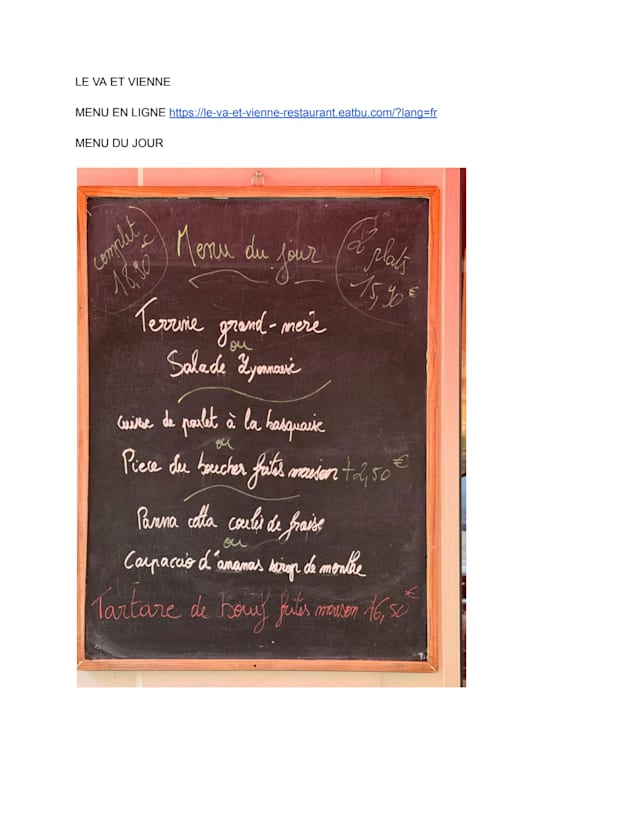 LE VA ET VIENNE
MENU EN LIGNE https://le-va-et-vienne-restaurant.eatbu.com/?lang=fr
MENU DU JOUR
complet
18,90 €
Menu du jour
2 plats
15,90 €
Terrine grand-mère
ou
Salade Lyonnaise
cuisse de poulet à la basquaise
ou
Piece du boucher frites maison +2,50 €
Panna cotta coulis de fraise
ou
Carpaccio d'ananas sirop de menthe
Tartare de boeuf frites maison 16,50 €